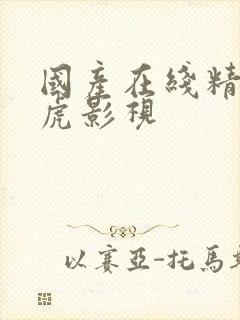 國產在綫精
虎影視
以賽亞-托馬